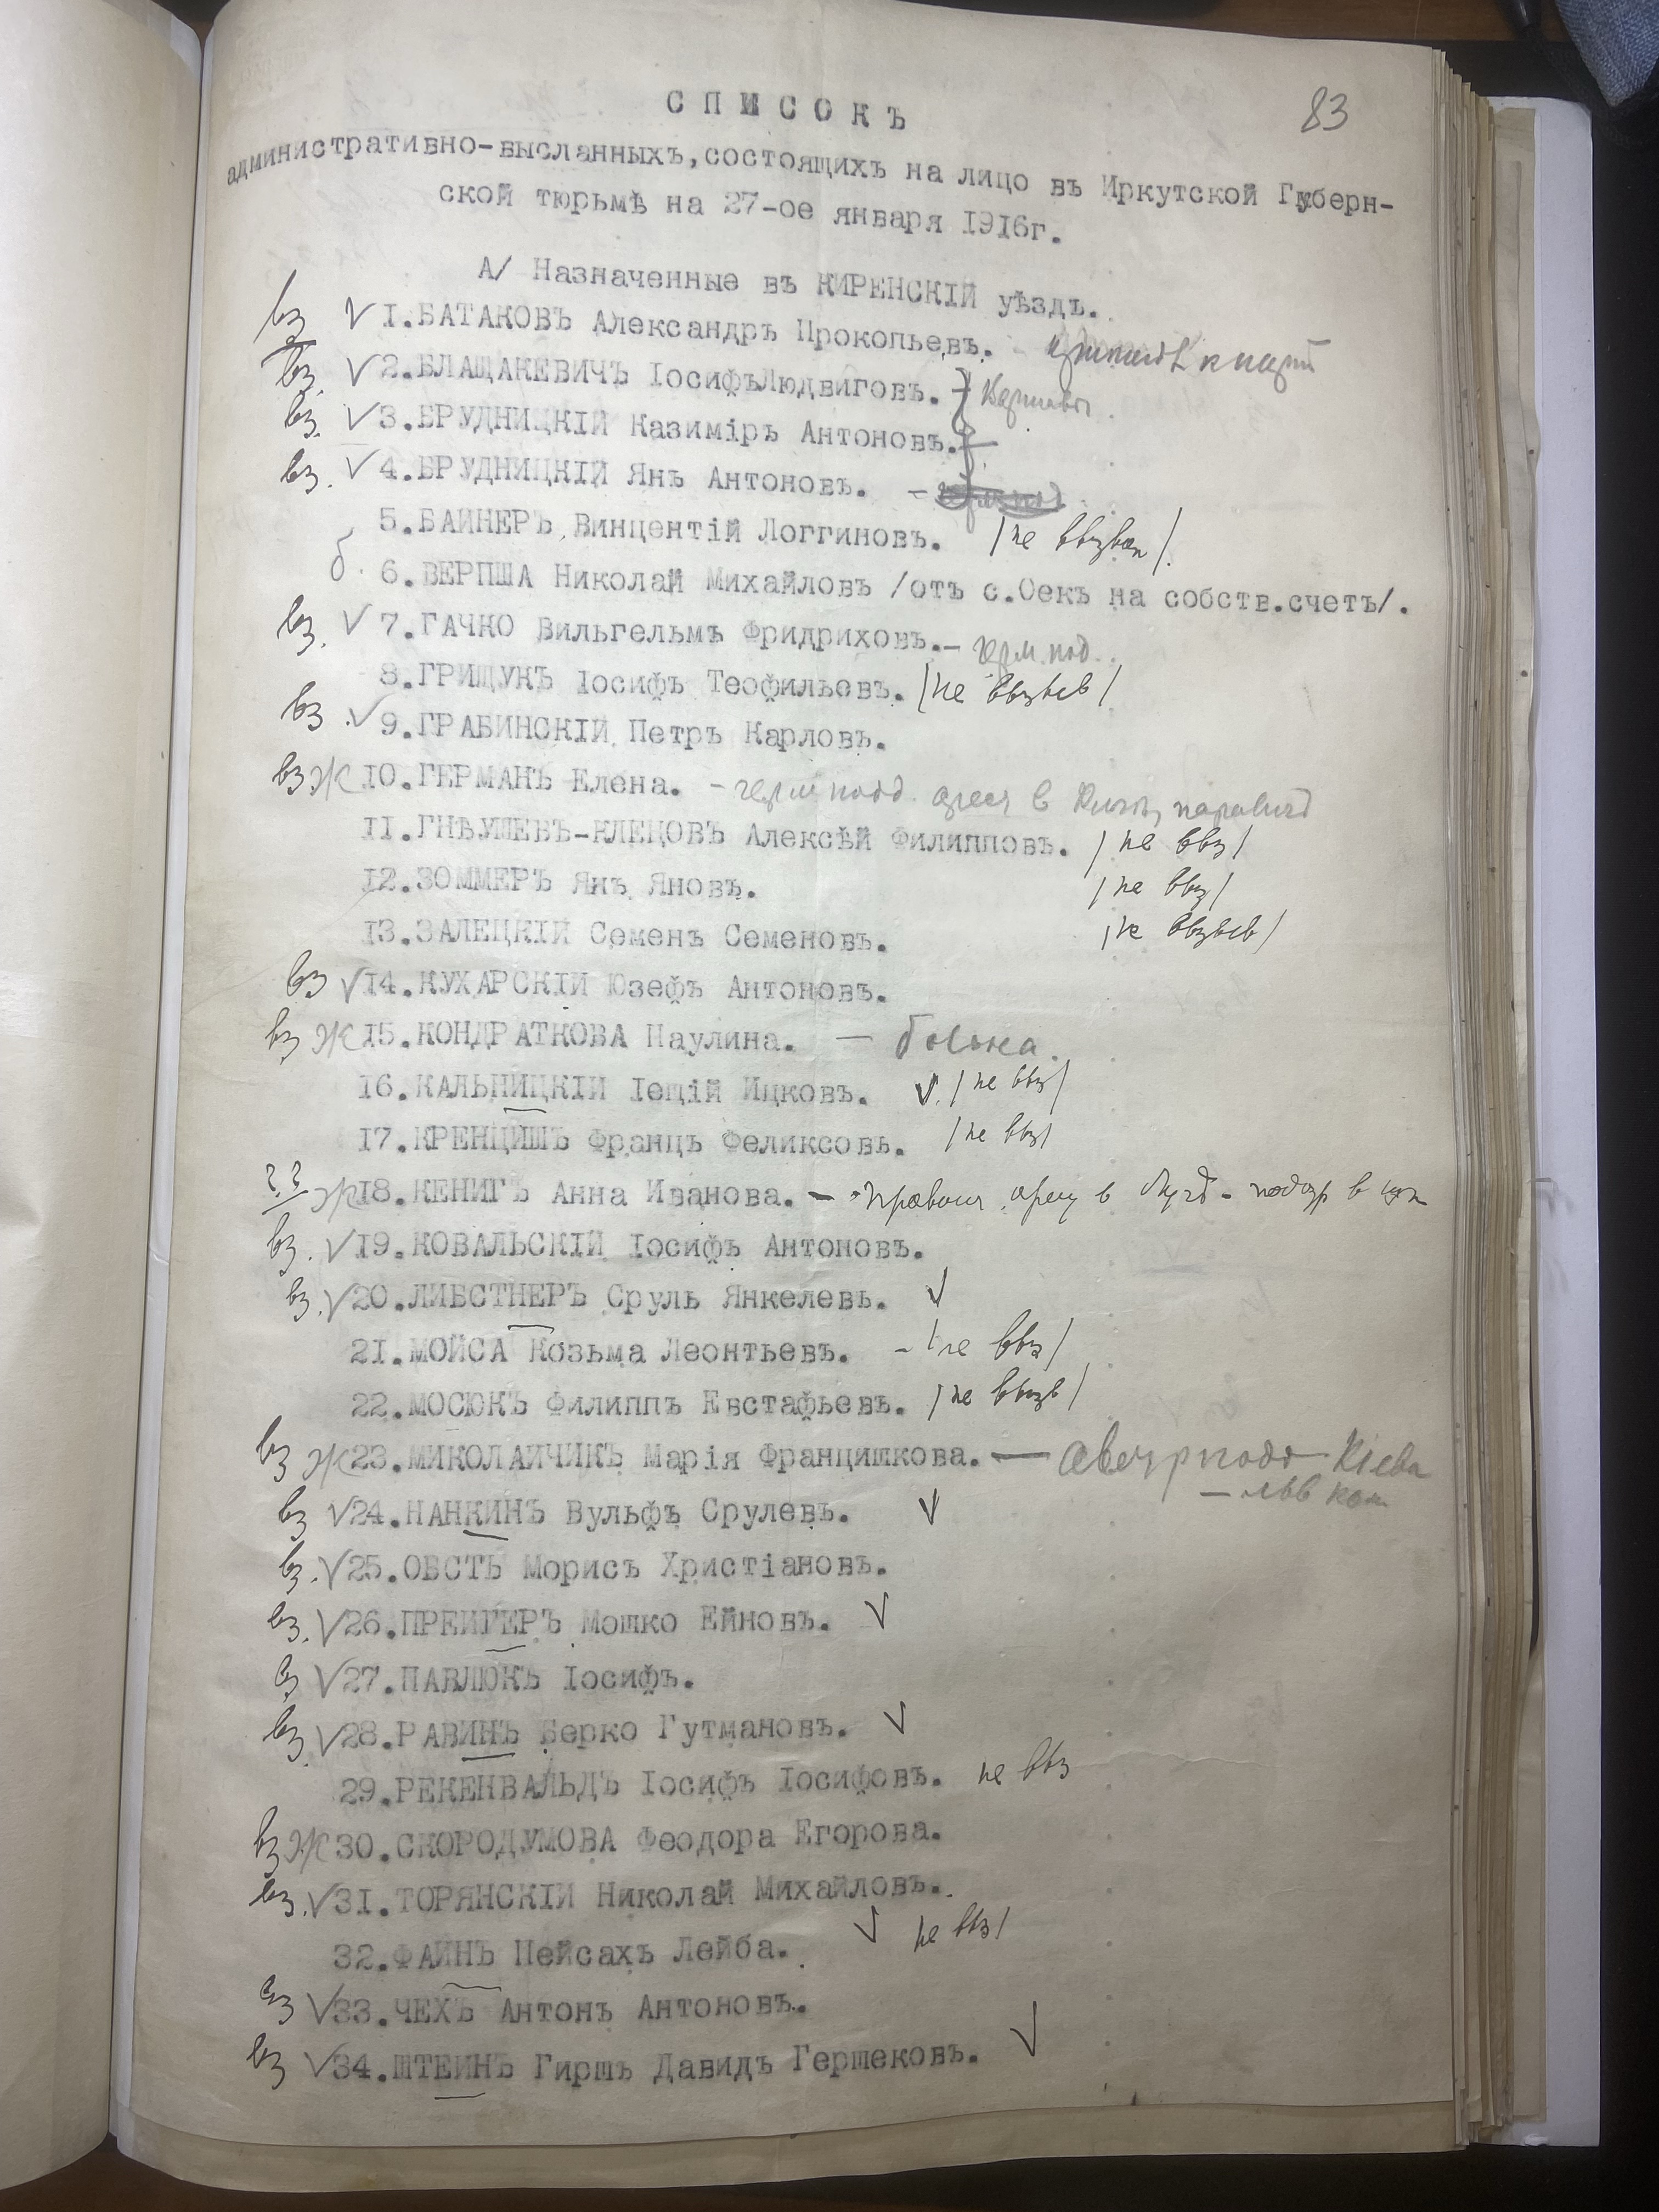 83
СПИСОКЪ
административно-высланныхъ,состоящихъ на лицо въ Иркутской Губерн-
ской тюрьмѣ на 27-ое января 1916г.
А/ Назначенные въ КИРЕНСКІЙ уѣздъ.
вз √ 1.БАТАКОВЪ Александръ Прокопьевъ. -
вз. √ 2.БЛАЩАКЕВИЧЪ ІосифъЛюдвиговъ. -
вз. √ 3.БРУДНИЦКІЙ Казиміръ Антоновъ.
вз. √ 4.БРУДНИЦКІЙ Янъ Антоновъ. -
5.БАЙНЕРЪ Винцентій Логгиновъ. /не ввызван/.
б. 6.ВЕРПША Николай Михайловъ /отъ с.Оекъ на собств.счетъ/.
вз. √ 7.ГАЧКО Вильгельмъ Фридриховъ.- герм. под.
8.ГРИЩУКЪ Іосифъ Теофильевъ. /не
вз √ 9.ГРАБИНСКІЙ Петръ Карловъ.
вз Ж 10.ГЕРМАНЪ Елена. - герм подд. в
11.ГНѢУШЕВЪ-КЛЕЦОВЪ Алексѣй Филипповъ. /не ввз/
12.ЗОММЕРЪ Янъ Яновъ. /не ввз/
13.ЗАЛЕЦКІЙ Семенъ Семеновъ. /не
вз √14.КУХАРСКІЙ Юзефъ Антоновъ.
вз Ж 15.КОНДРАТКОВА Паулина. - больна.
16.КАЛЬНИЦКІЙ Іещій Ицковъ. √. /не ввз/
17.КРЕНЦИШЪ Францъ Феликсовъ. /не ввз/
?.? Ж18.КЕНИГЪ Анна Иванова. - в в
вз. √19.КОВАЛЬСКІЙ Іосифъ Антоновъ.
вз.√20.ЛИБСТНЕРЪ Сруль Янкелевъ. √
21.МОЙСА Козьма Леонтьевъ. - /не ввз/
22.МОСЮКЪ Филиппъ Евстафьевъ. /не ввызв/
вз Ж23.МИКОЛАЙЧИКЪ Марія Францишкова. - Кіева
вз √24.НАНКИНЪ Вульфъ Срулевъ. √
вз.√25.ОБСТЪ Морисъ Христіановъ.
вз.√26.ПРЕЙГЕРЪ Мошко Ейновъ. √
вз √27.ПАВЛЮКЪ Іосифъ.
вз √28.РАВИНЪ Берко Гутмановъ. √
29.РЕКЕНВАЛЬДЪ Іосифъ Іосифовъ. не ввз
вз Ж30.СКОРОДУМОВА Феодора Егорова.
вз.√31.ТОРЯНСКІЙ Николай Михайловъ.
32.ФАЙНЪ Пейсахъ Лейба. √ не ввз/
вз √33.ЧЕХЪ Антонъ Антоновъ.
вз √34.ШТЕЙНЪ Гиршъ Давидъ Гершековъ. √